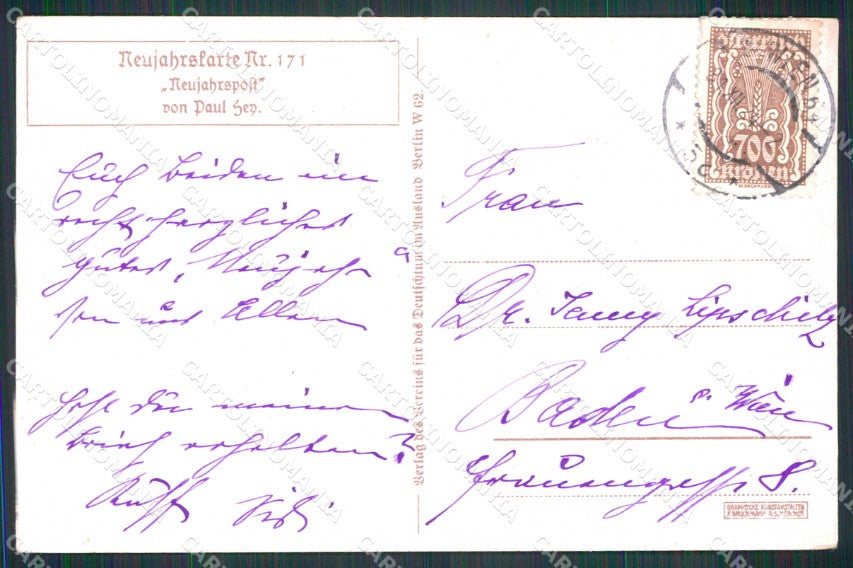 Neujahrskarte Nr. 171
„Neujahrspost"
von Paul Hey.
Euch beiden ein
recht herzliches
gutes Neujahr
von uns Allen
Hast Du meinen
Brief erhalten?
Verlag des Vereins für das Deutschtum im Ausland Berlin W 62.
Frau
Dr. Jenny Lipschitz
Baden b. Wien
Frauengasse 8.
700
Kronen
WIEN
GRAPHISCHE KUNSTANSTALTEN
F. BRUCKMANN A.G. MÜNCHEN
CARTOLINOMANIA